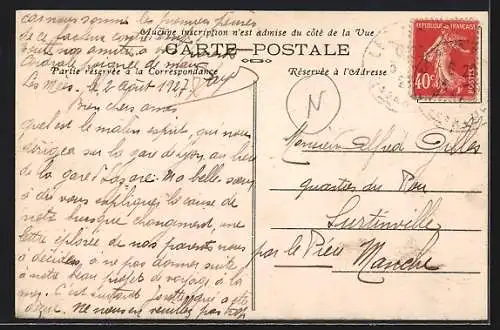 car nous sommes les premiers peinés
de ce fâcheux contretemps.
Aucune inscription n'est admise du côté de la Vue
CARTE POSTALE
Partie réservée à la Correspondance
Réservée à l'Adresse
Cordiale poignée de main
Les Mées, le 2 Août 1927
Bien chers amis
quel est le malin esprit, qui nous
dirigea sur la gare de Lyon au lieu
de la gare St Lazare. Ma belle sœur
a dû vous expliquer la cause de
notre brusque changement, une
lettre éplorée de nos parents nous
a décidés, à ne pas donner suite
à notre beau projet de voyage à la
mer. C'est surtout Josette qui a été
déçue. Ne nous en veuillez pas trop
40c
POSTES
N
Monsieur Alfred Gilles
quartier du Pou
Surtainville
par le Pieux Manche